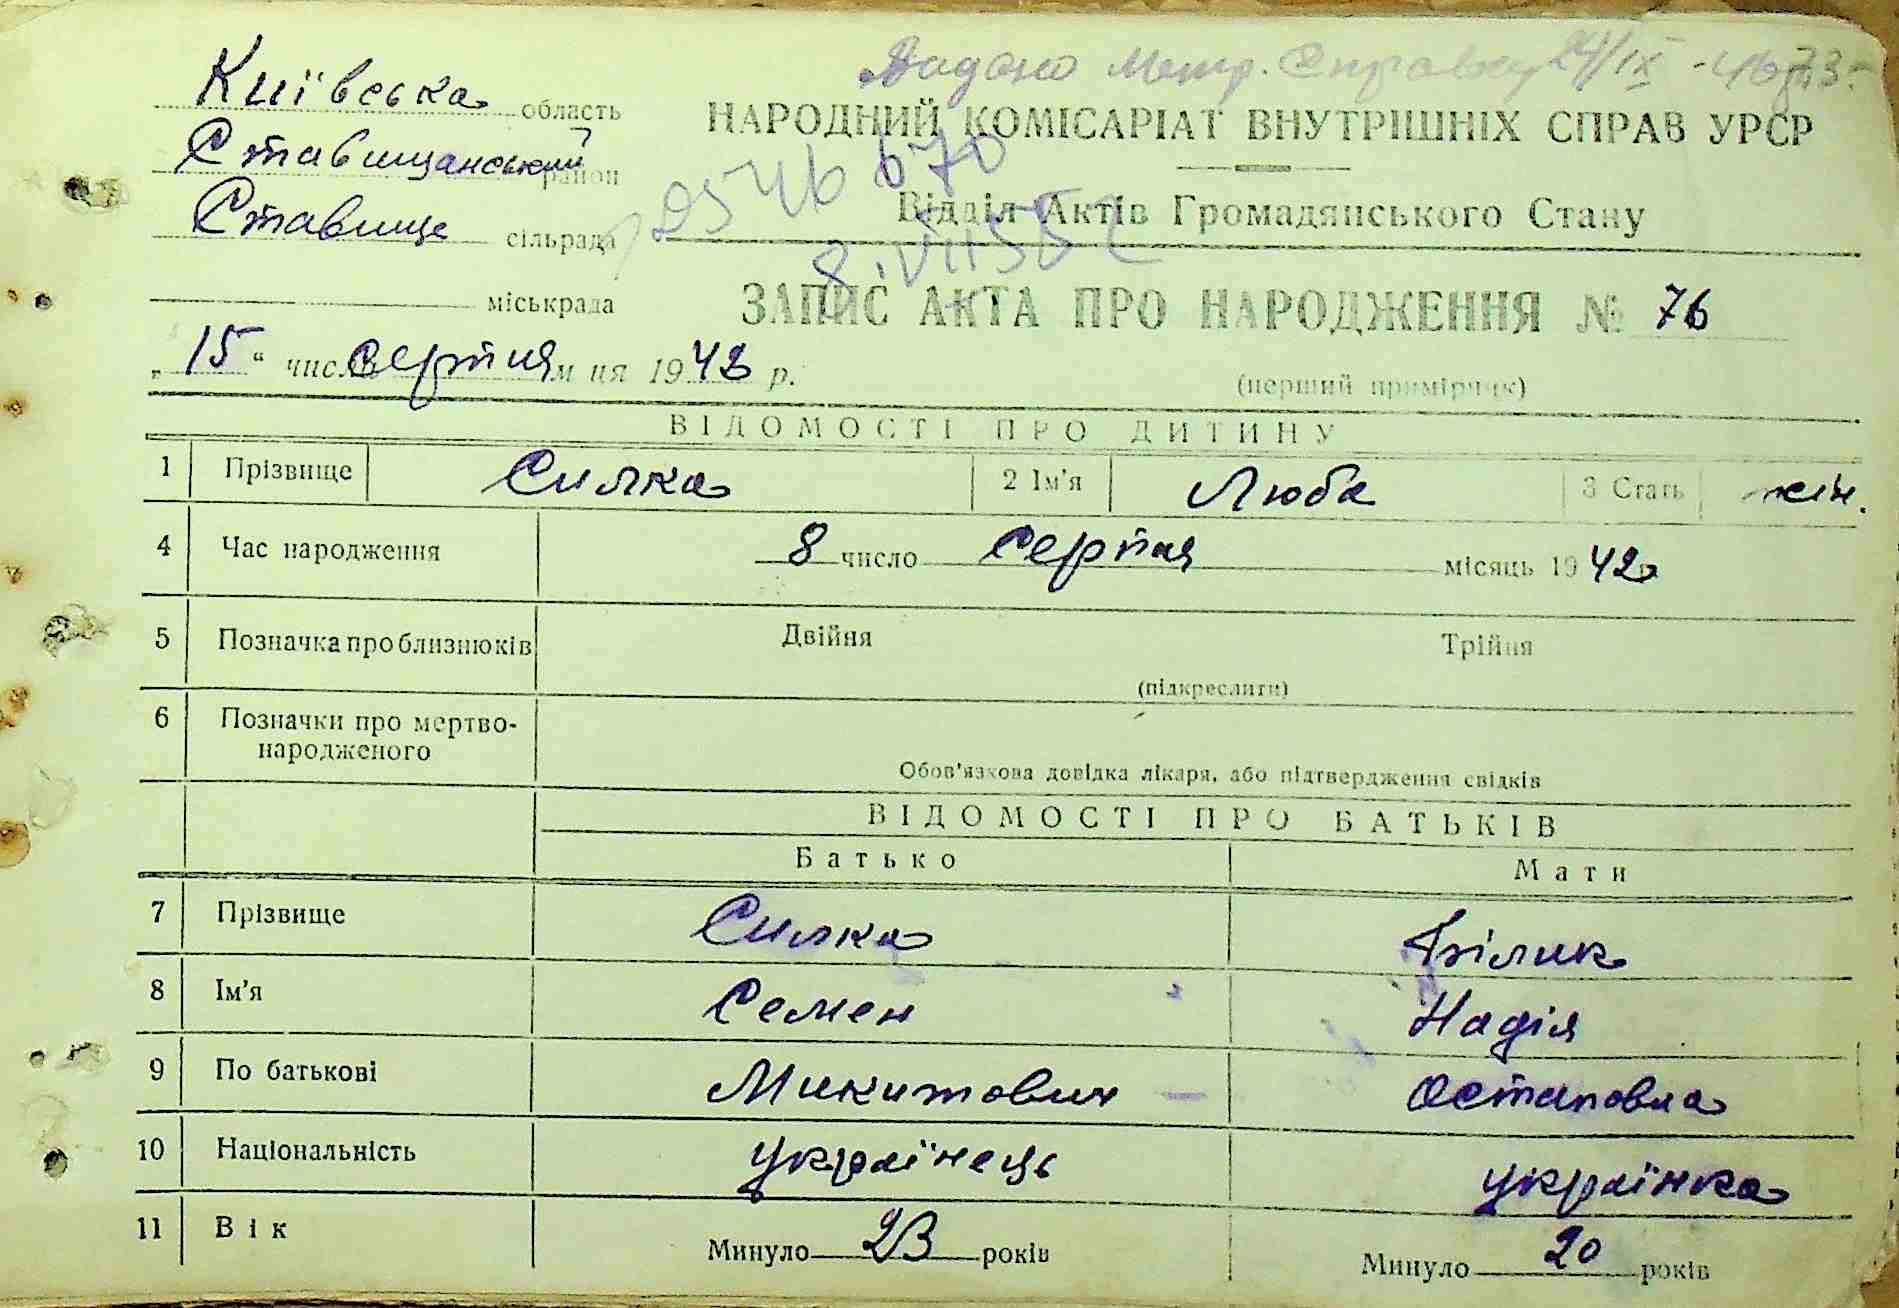 Видано метр. Справку 24/IX - 46р.
Київська область
НАРОДНИЙ КОМІСАРІАТ ВНУТРІШНІХ СПРАВ УРСР
Ставищанський район
Відділ Актів Громадянського Стану
Ставище сільрада
міськрада
ЗАПИС АКТА ПРО НАРОДЖЕННЯ № 76
„ 15 “ числа серпня м ця 1942 р.
(перший примірник)
ВІДОМОСТІ ПРО ДИТИНУ
1 Прізвище Силка 2 Ім'я Люба 3 Стать жін.
4 Час народження 8 число серпня місяць 1942 р.
5 Позначка про близнюків Двійня Трійня
(підкреслити)
6 Позначки про мертво-
народженого
Обов'язкова довідка лікаря, або підтвердження свідків
ВІДОМОСТІ ПРО БАТЬКІВ
Батько Мати
7 Прізвище Силка Білик
8 Ім'я Семен Надія
9 По батькові Микитович Остаповна
10 Національність українець українка
11 Вік Минуло 23 років Минуло 20 років